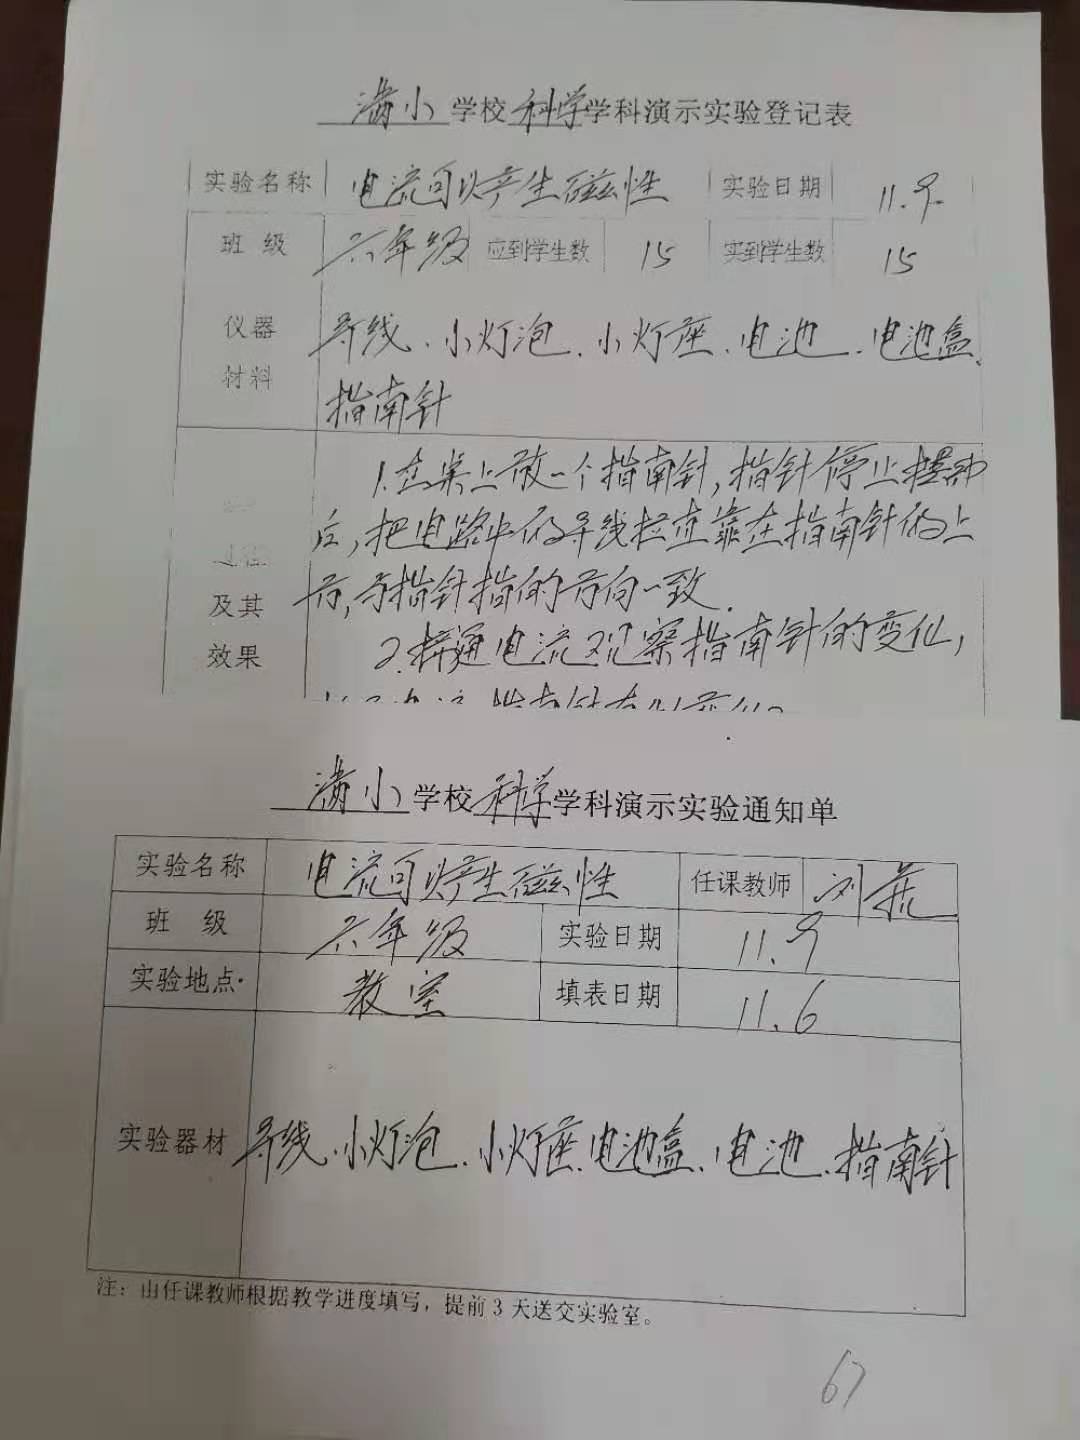 满小 学校 科学 学科演示实验登记表
实验名称 电流可以产生磁性 实验日期 11.9
班 级 六年级 应到学生数 15 实到学生数 15
仪器 导线、小灯泡、小灯座、电池、电池盒、
材料 指南针
1.在桌上放一个指南针,指针停止摆动
后,把电路中的导线拉直靠在指南针的上
过程
方,与指针指的方向一致.
及其
2.接通电流观察指南针的变化,
效果
满小 学校 科学 学科演示实验通知单
实验名称 电流可以产生磁性 任课教师 刘
班 级 六年级 实验日期 11.9
实验地点 教室 填表日期 11.6
实验器材 导线、小灯泡、小灯座、电池盒、电池、指南针
注:由任课教师根据教学进度填写,提前3天送交实验室。
67